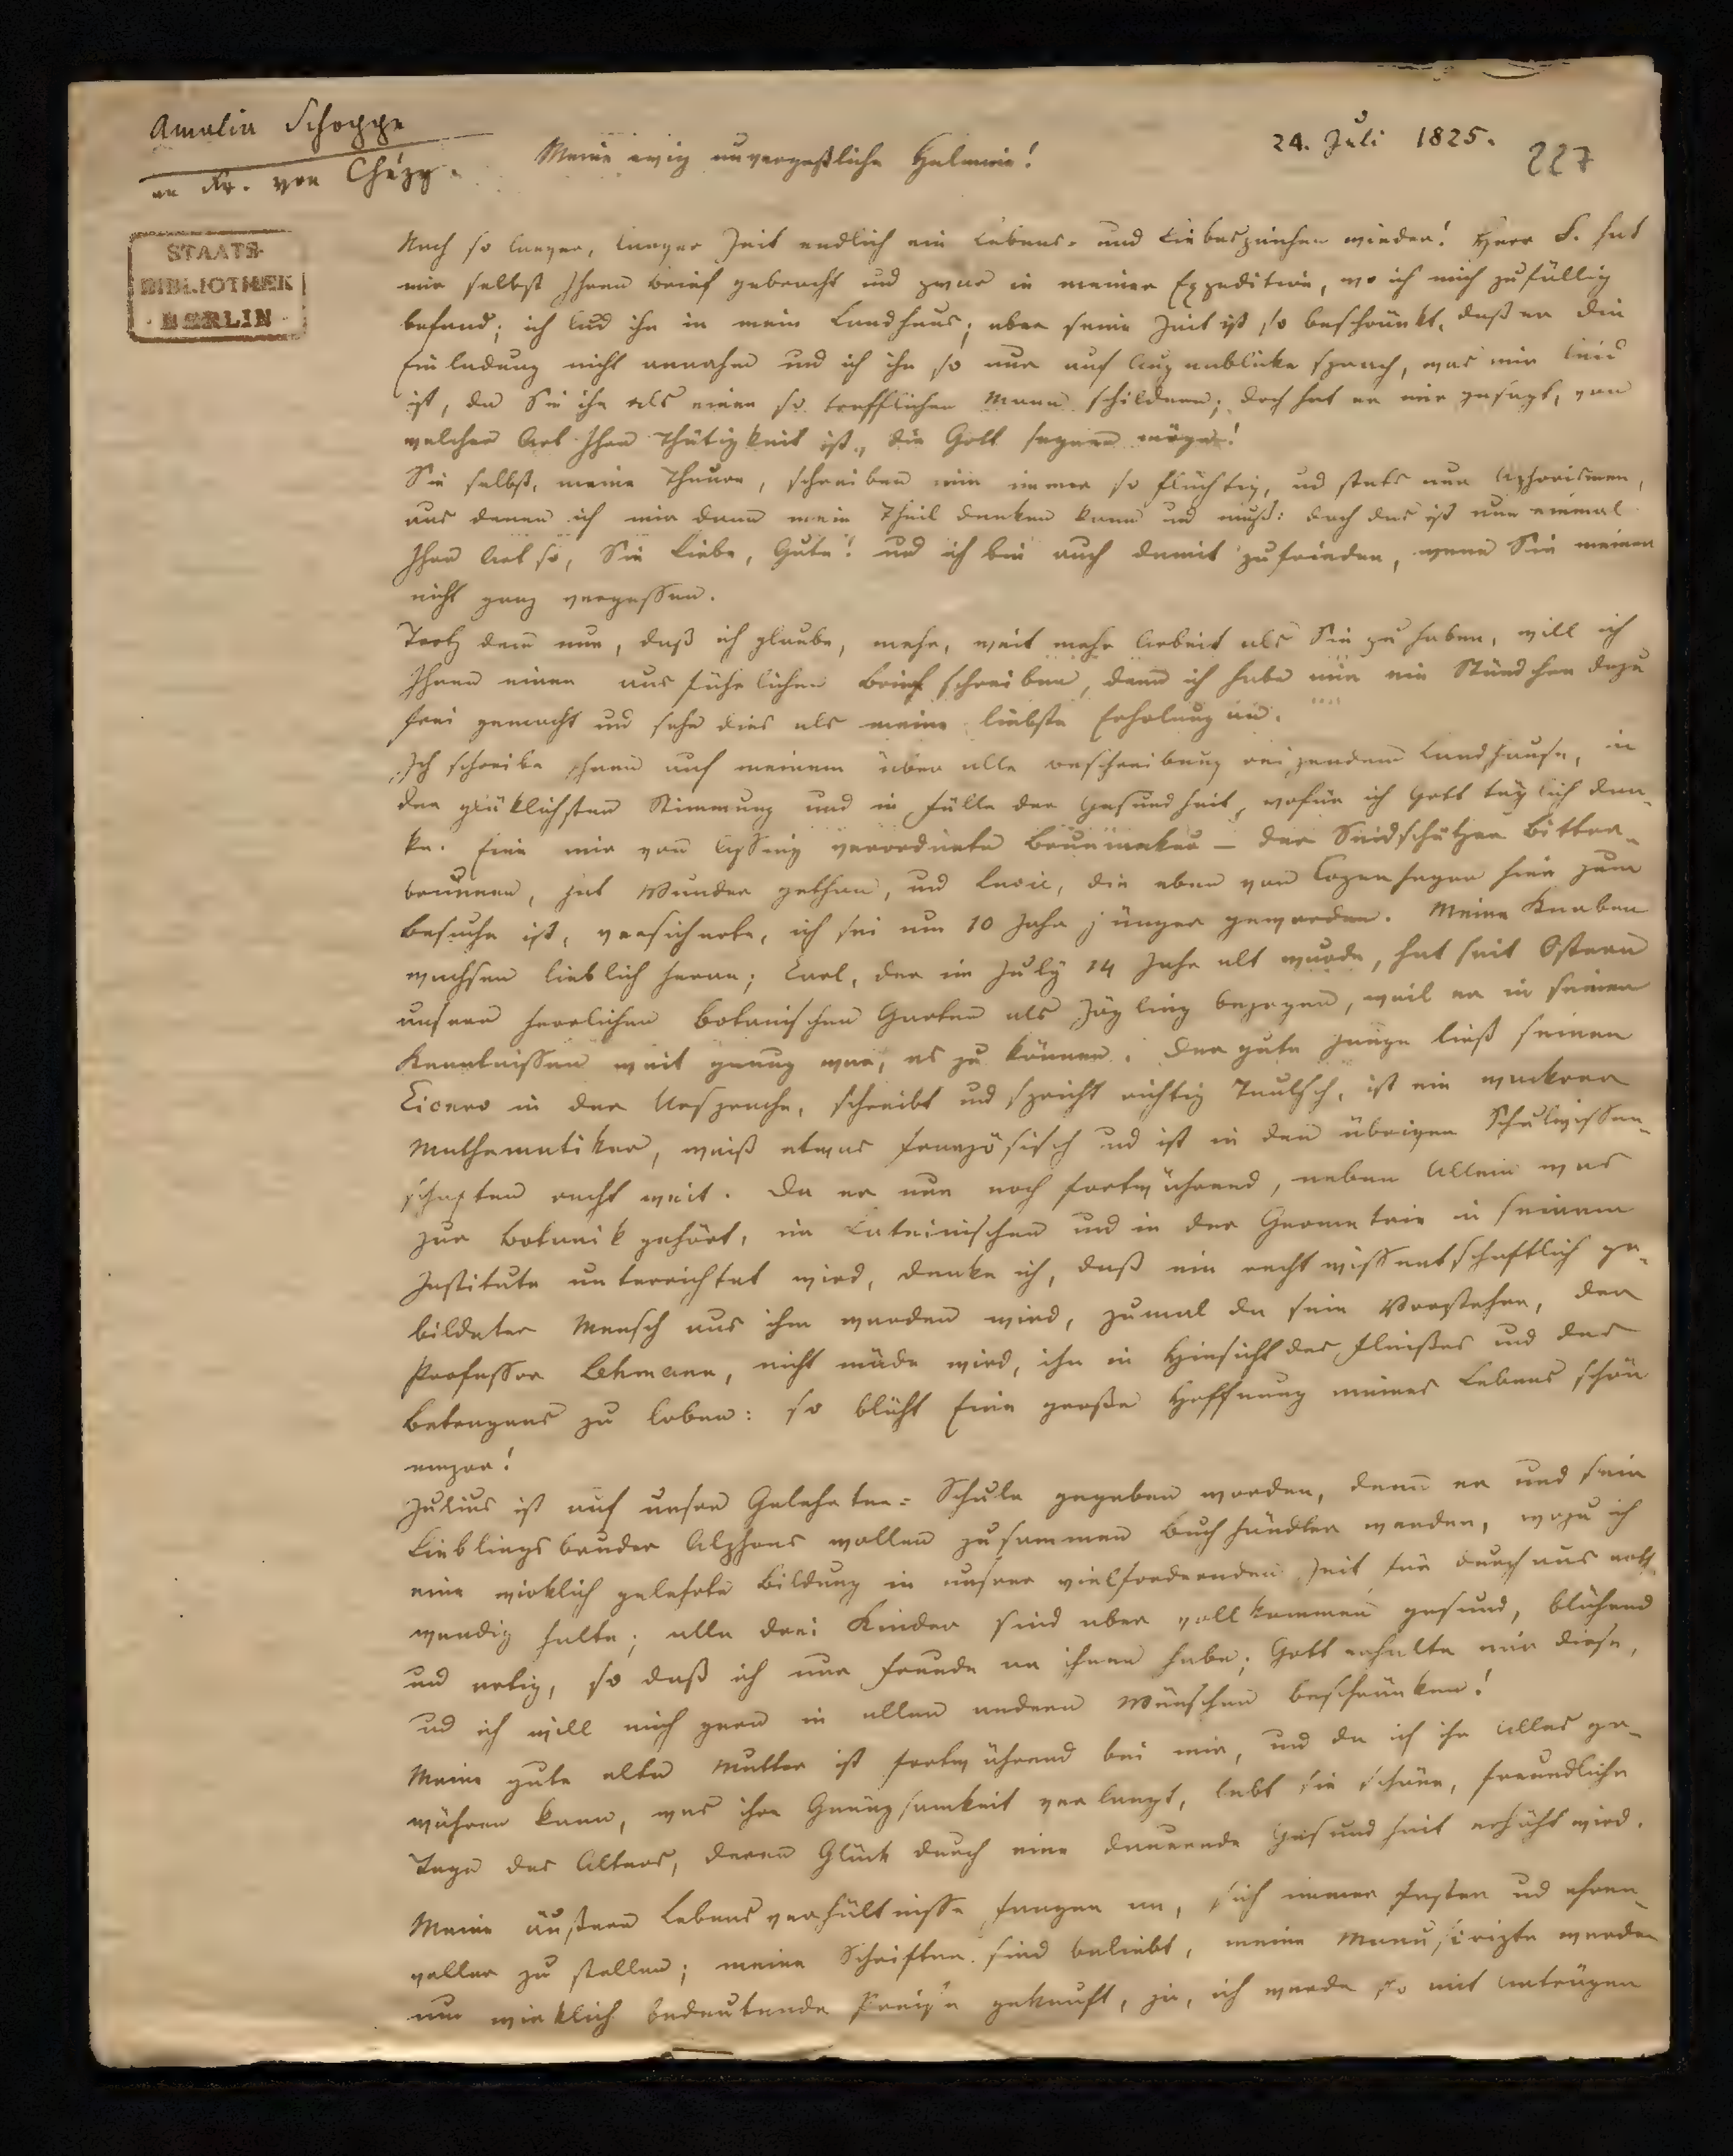 Amalia Schoppe
an Fr. von Chézy.
24. Juli 1825.
227
Meine ewig unvergeßliche Helmine!
STAATS-
BIBLIOTHEK
BERLIN
Nach so langer, langer Zeit endlich ein Lebens- und Liebeszeichen wieder! Herr S. hat
mir selbst Ihren Brief gebracht und zwar in meiner Expedition, wo ich mich zufällig
befand; ich lud ihn in mein Landhaus; aber seine Zeit ist so beschränkt, daß er die
Einladung nicht annahm und ich ihn so nur auf Augenblicke sprach, was mir leid
ist, da Sie ihn als einen so trefflichen Mann schildern; doch hat er mir gesagt, von
welcher Art Ihre Thätigkeit ist, die Gott segnen möge!
Sie selbst, meine Theure, schreiben mir immer so flüchtig, und stets nur Aphorismen,
aus denen ich mir dann mein Theil denken kann und muß: doch das ist nun einmal
Ihre Art so, Sie Liebe, Gute! und ich bin auch damit zufrieden, wenn Sie meiner
nicht ganz vergessen.
Trotz dem nun, daß ich glaube, mehr, weit mehr Arbeit als Sie zu haben, will ich
Ihnen einen ausführlichen Brief schreiben, denn ich habe mir ein Stündchen dazu
frei gemacht und sehe dies als meine liebste Erholung an.
Ich schreibe Ihnen auf meinem über alle Beschreibung reizendem Landhause, in
der glüklichsten Stimmung und in Fülle der Gesundheit, wofür ich Gott täglich dan-
ke. Eine mir von Assing verordnete Brunnenkur – der Saidschützer Bitter-
brunnen, hat Wunder gethan, und die eben von Copenhagen hier zum
Besuche ist, versicherte, ich sei um 10 Jahr jünger geworden. Meine Knaben
wachsen lieblich heran; Carl, der im July 14 Jahr alt wurde, hat seit Ostern
unsern herrlichen botanischen Garten als Zögling bezogen, weil er in seinen
Kenntnissen weit genug war, es zu können. Der gute Junge ließt seinen
Cicero in der Ursprache, schreibt und spricht richtig Teutsch, ist ein wackerer
Mathematiker, weiß etwas französisch und ist in den übrigen Schulwissen-
schaften recht weit. Da er nun noch fortwährend, neben Allem was
zur Botanik gehört, im Lateinischen und in der Geometrie in seinem
Institute unterrichtet wird, denke ich, daß ein recht wissenschaftlich ge-
bildeter Mensch aus ihm werden wird, zumal da sein Vorsteher, der
Professor Lehmann, nicht müde wird, ihn in Hinsicht des Fleißes und des
Betragens zu loben: so blüht Eine große Hoffnung meines Lebens schön
empor!
Julius ist auf unsre Gelehrten-Schule gegeben worden, denn er und sein
Lieblingsbruder Alphons wollen zusammen Buchhändler werden, wozu ich
eine wirklich gelehrte Bildung in unsrer vielfordernden Zeit für durchaus noth
wendig halte; alle drei Kinder sind aber vollkommen gesund, blühend
und artig, so daß ich nur Freude an ihnen habe; Gott erhalte mir diese,
und ich will mich gern in allen andern Wünschen beschränken!
Meine gute alte Mutter ist fortwährend bei mir, und da ich ihr Alles ge-
währen kann, was ihre Genügsamkeit verlangt, lebt sie schöne, freundliche
Tage des Alters, deren Glück durch eine dauernde Gesundheit erhöht wird.
Meine äußern Lebensverhältnisse fangen an, sich immer fester und ehren-
voller zu stellen; meine Schriften sind beliebt, meine Manuscripte werden
um wirklich bedeutende Preise gekauft, ja, ich werde so mit Anträgen